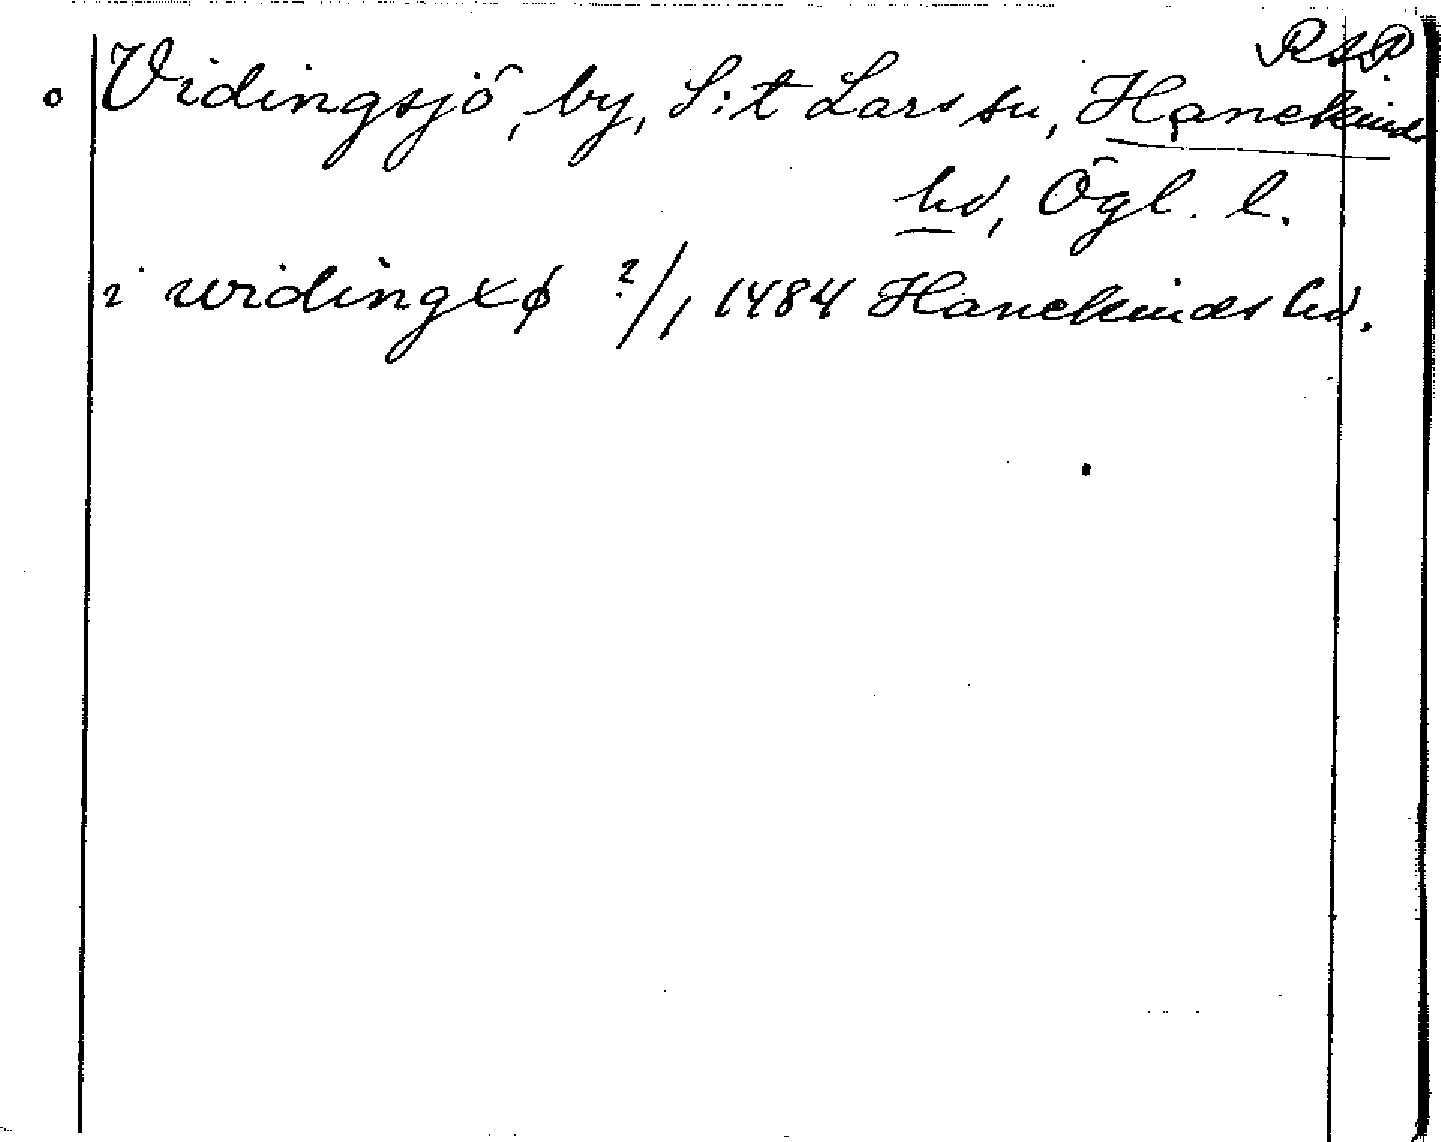 RAP
o Vidingsjö, by, S:t Lars sn, Hanekinds
hd, Ögl. l.
i widingxø ²/1 1484 Hanekinds hd.